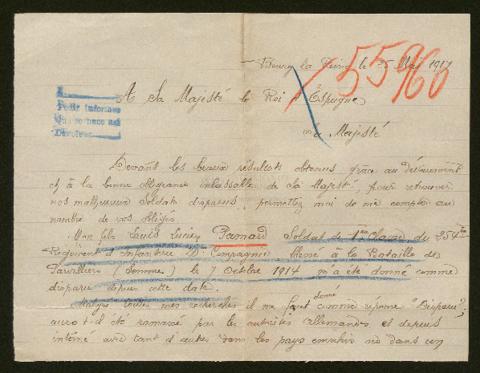 Bourg la Reine le 25 Mai 1917
55960
A Sa Majesté le Roi d'Espagne
Pedir informes
Devolver
Majesté
Devant les beaux résultats obtenus grâce au dévouement
et à la bonne obligeance inlassable de Sa Majesté, pour retrouver
nos malheureux Soldats disparus, permettez moi de me compter au
nombre de vos obligés
Mon fils Louis Lucien Pamard Soldat de 1ère classe du 254ème
Régiment d'Infanterie Compagnie blessé à la Bataille des
(Somme) le 7 Octobre 1914 m'a été donné comme
disparu depuis cette date.
Malgré toutes mes recherches il me fut donné comme réponse "Disparu";
aurait-il été ramassé par les autorités Allemandes et depuis
interné avec tant d'autres dans les pays envahis ou dans un